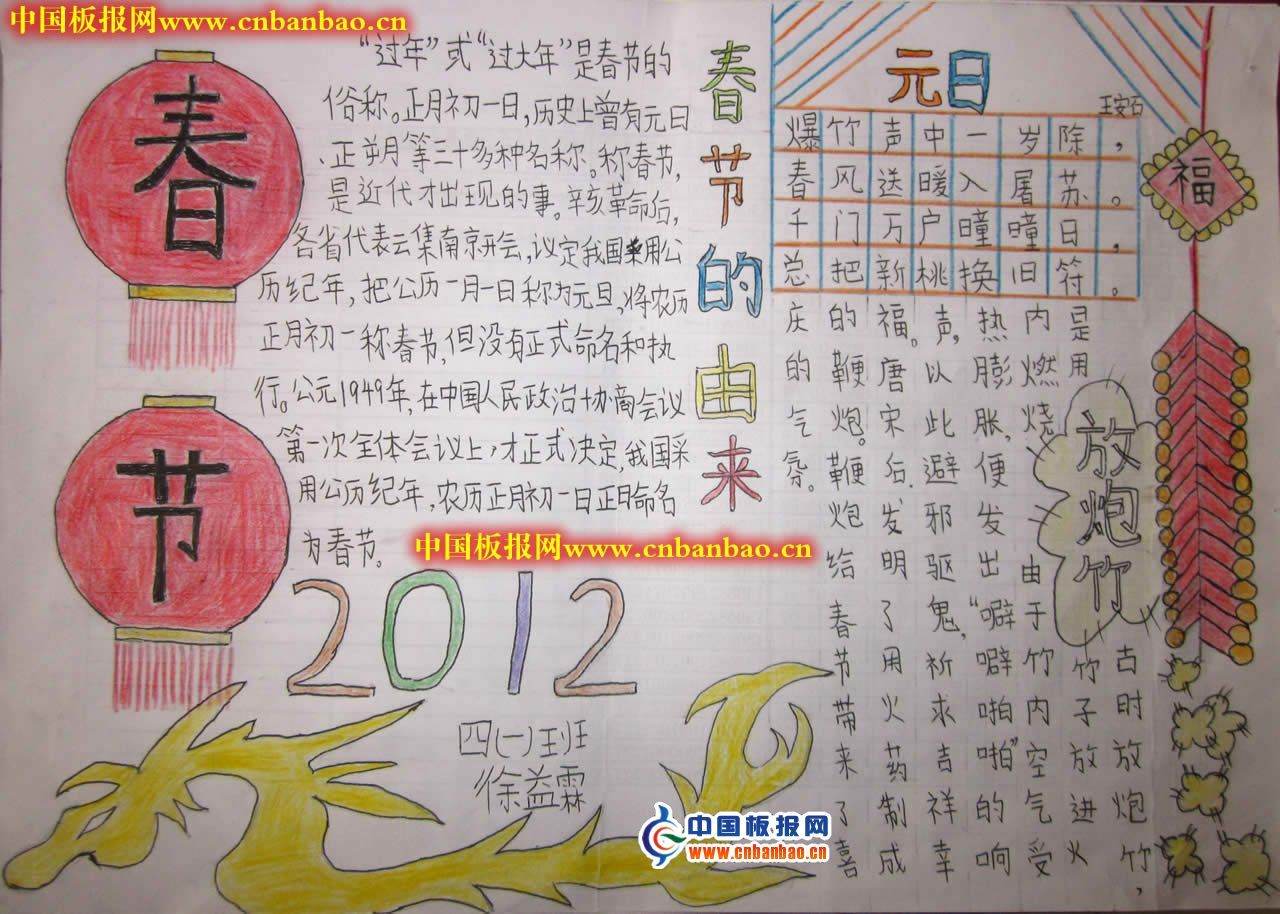 中国板报网www.cnbanbao.cn
春
节
“过年”或“过大年”是春节的
俗称。正月初一日,历史上曾有元日
、正朔等三十多种名称。称春节,
是近代才出现的事。辛亥革命后,
各省代表云集南京开会,议定我国采用公
历纪年,把公历一月一日称为元旦,将农历
正月初一称春节,但没有正式命名和执
行。公元1949年,在中国人民政治协商会议
第一次全体会议上,才正式决定,我国采
用公历纪年,农历正月初一日正日命名
为春节。
春节的由来
中国板报网www.cnbanbao.cn
2012
四(一)班
徐益霖
元日
王安石
爆竹声中一岁除，
春风送暖入屠苏。
千门万户瞳瞳日，
总把新桃换旧符。
福
放炮竹
古时放炮竹，
是用竹子放进火
内燃烧,由于竹内空气受
热膨胀,便发出“噼噼啪啪”的响
声,以此避邪驱鬼,祈求吉祥幸
福。唐宋后发明了用火药制成
的鞭炮。鞭炮给春节带来了喜
庆的气氛。
中国板报网
www.cnbanbao.cn